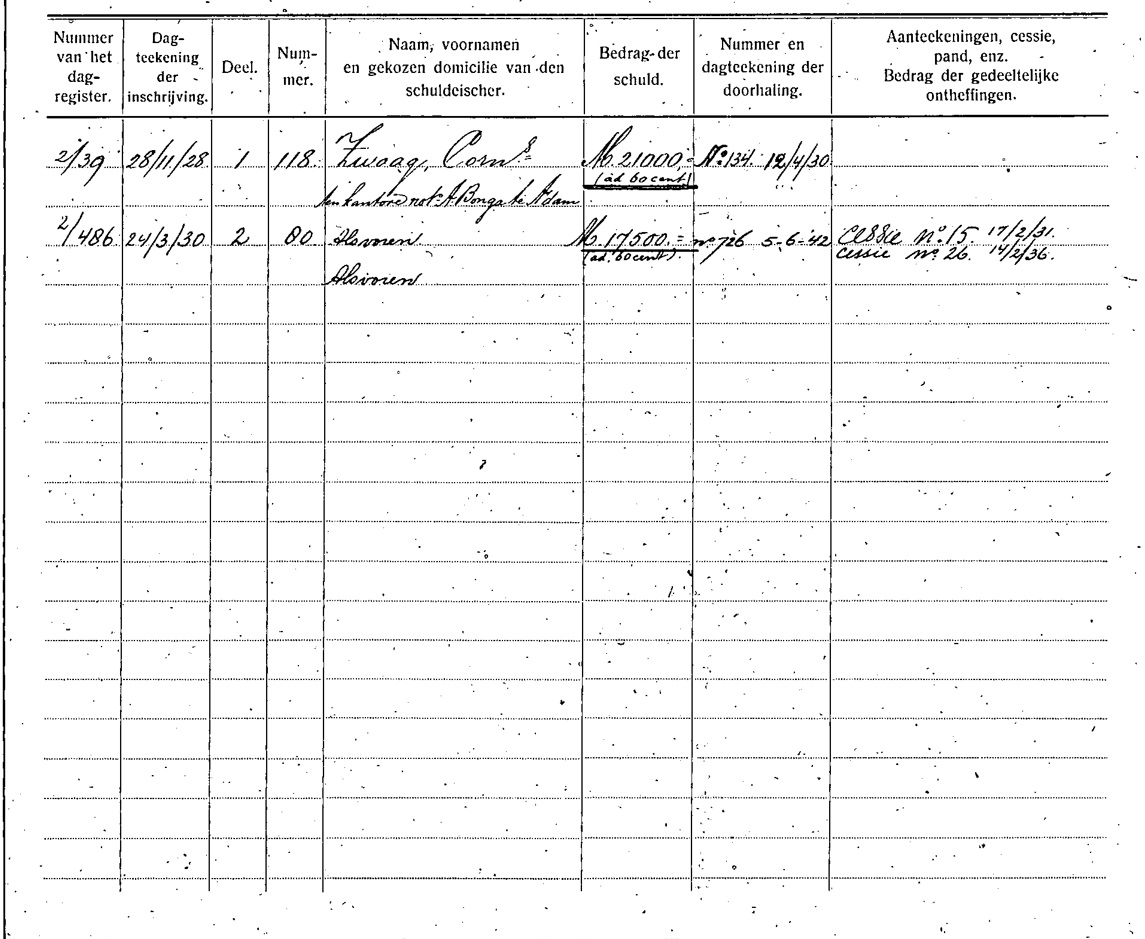 Nummer van het dag- register.
Dag- teekening der inschrijving.
Deel.
Num- mer.
Naam, voornamen en gekozen domicilie van den schuldeischer.
Bedrag der schuld.
Nummer en dagteekening der doorhaling.
Aanteekeningen, cessie, pand, enz. Bedrag der gedeeltelijke ontheffingen.
2/39 28/11/28 1 118 Zwaag, Corns M. 21000,- No 134. 12/4/30
(ad 60 cent)
ten kantore nots A. Bonga te A'dam
2/486 24/3/30 2 80 Alsvoren M. 17500.= no 726 5-6-42 Cessie no. 15. 17/2/31.
(ad. 60 cent). cessie no. 26. 14/2/36.
Alsvoren